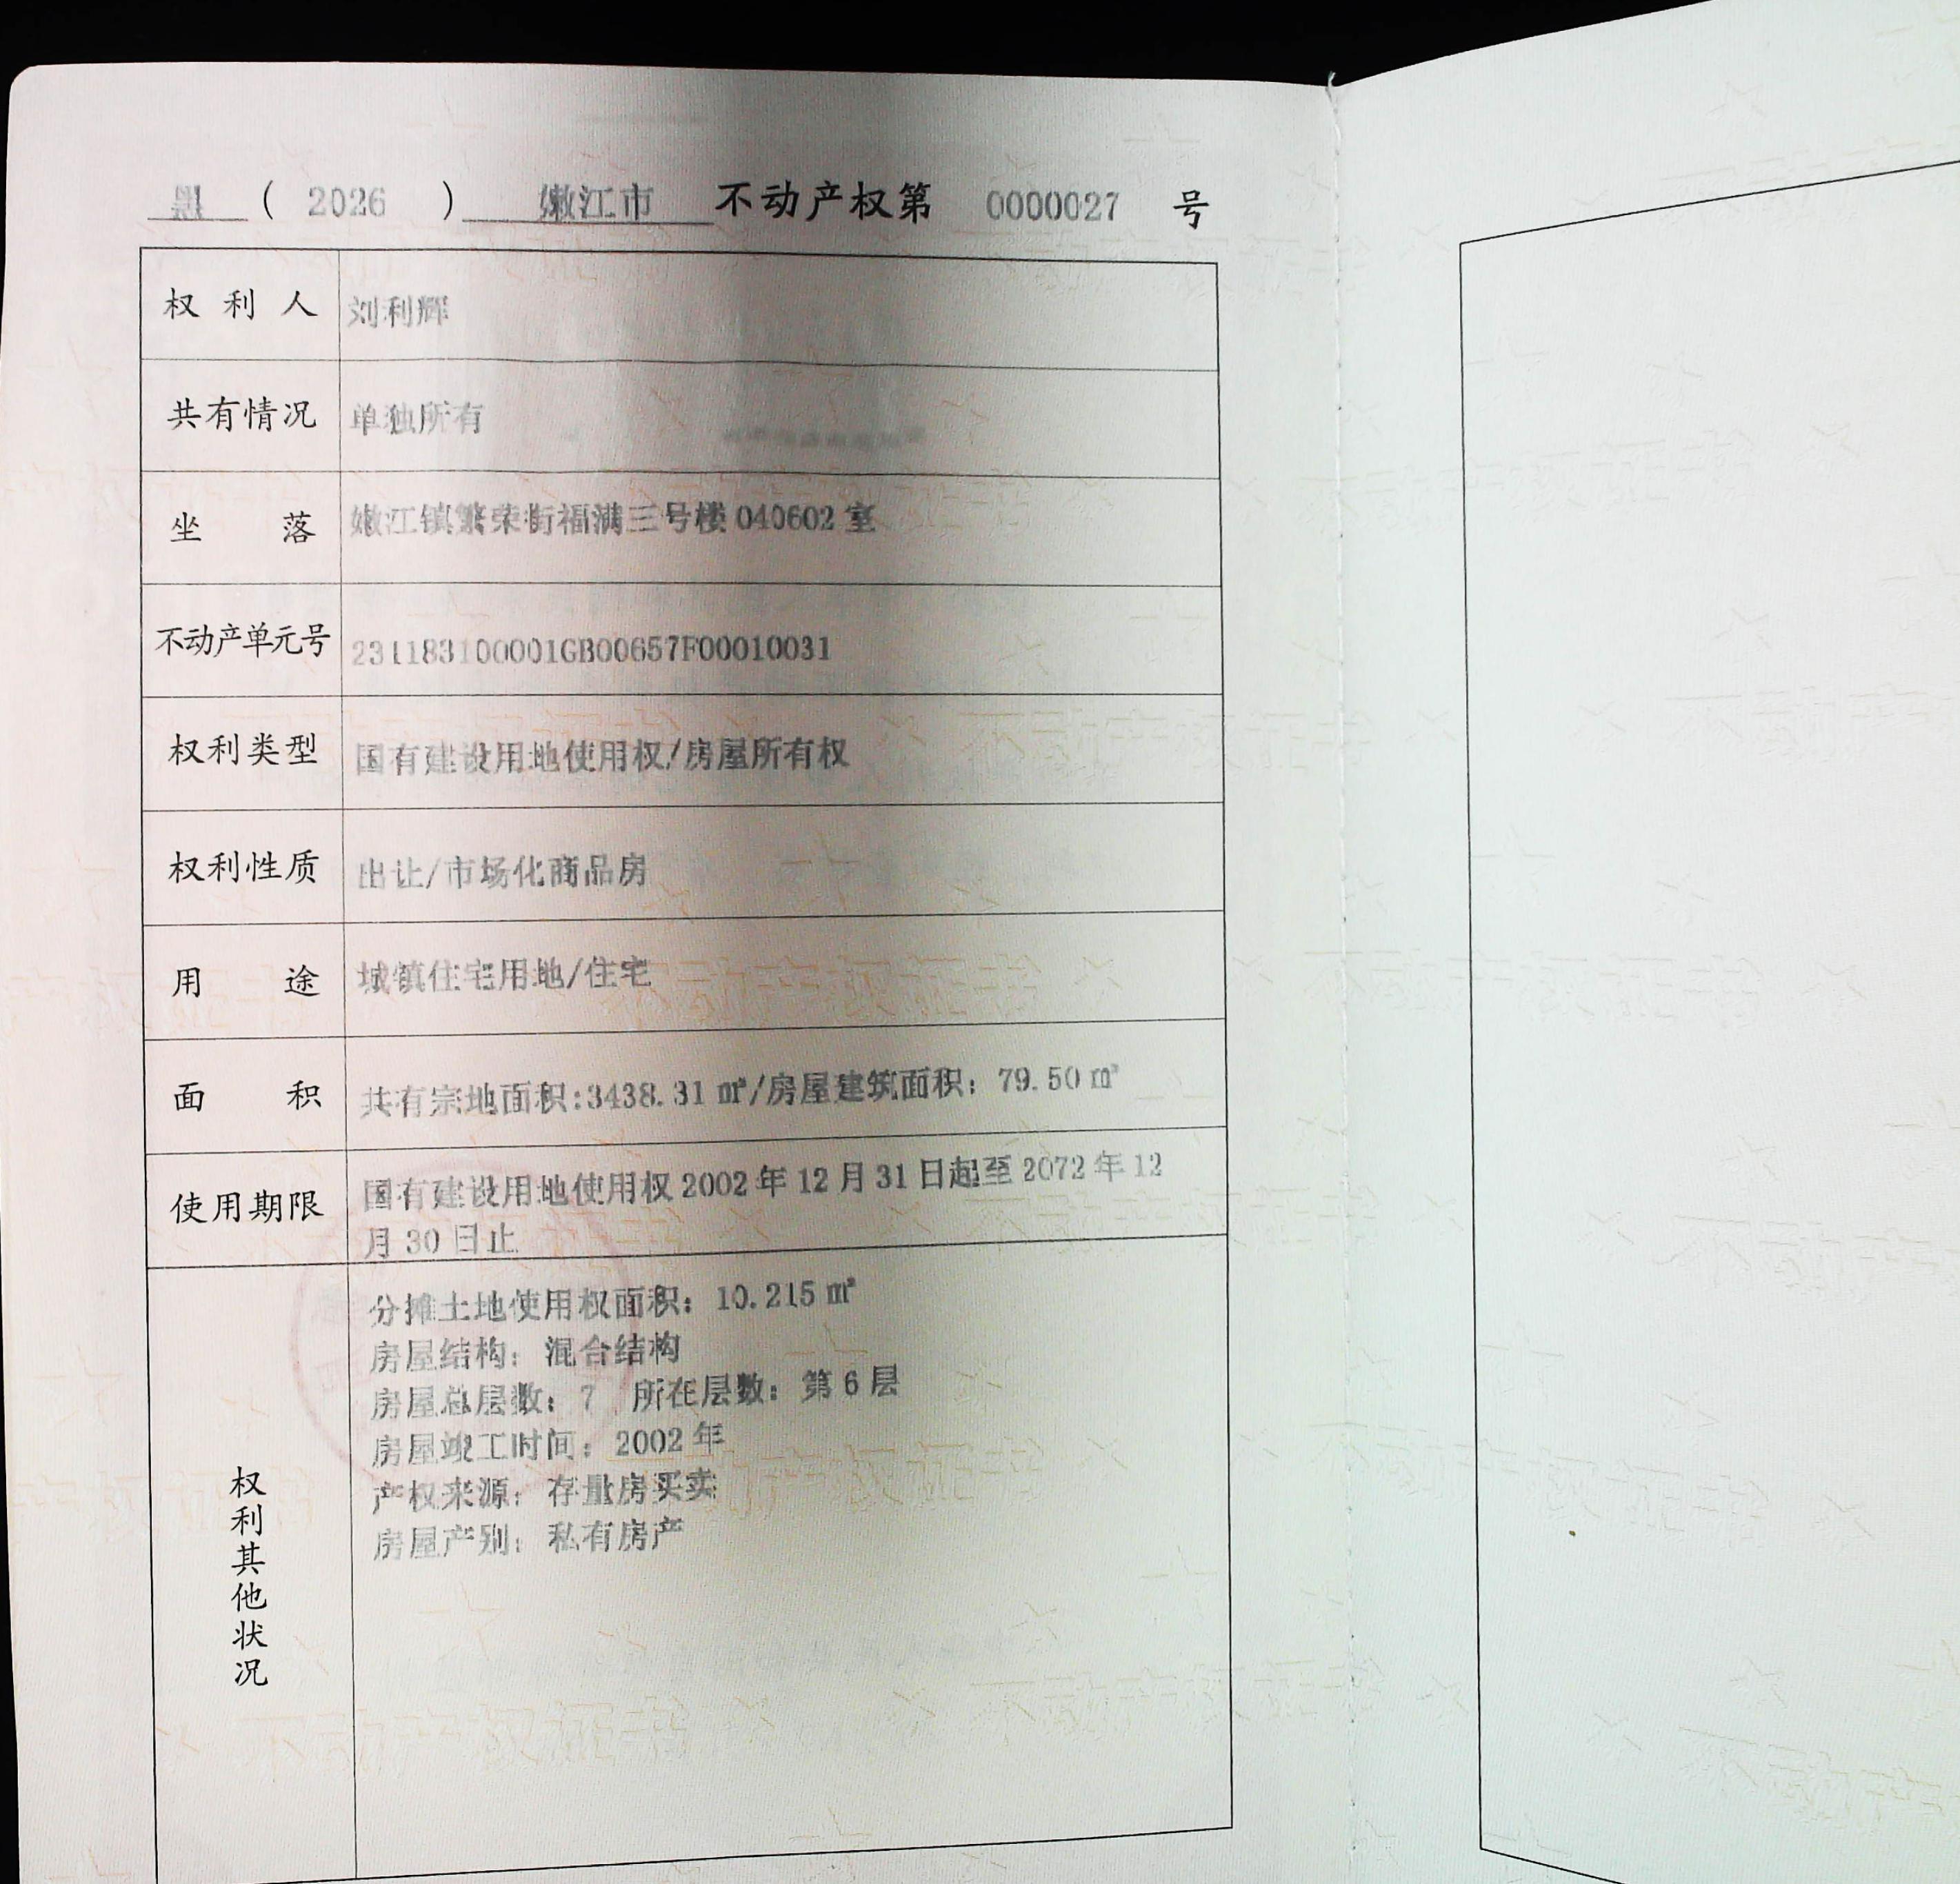 黑 ( 2026 ) 嫩江市 不动产权第 0000027 号
权利人 刘利辉
共有情况 单独所有
坐落 嫩江镇繁荣街福满三号楼 040602 室
不动产单元号 231183100001GB00657F00010031
权利类型 国有建设用地使用权/房屋所有权
权利性质 出让/市场化商品房
用途 城镇住宅用地/住宅
面积 共有宗地面积:3438.31 ㎡/房屋建筑面积: 79.50 ㎡
使用期限 国有建设用地使用权 2002 年 12 月 31 日起至 2072 年 12
月 30 日止
权利其他状况
分摊土地使用权面积: 10.215 ㎡
房屋结构: 混合结构
房屋总层数: 7 所在层数: 第 6 层
房屋竣工时间: 2002 年
产权来源: 存量房买卖
房屋产别: 私有房产